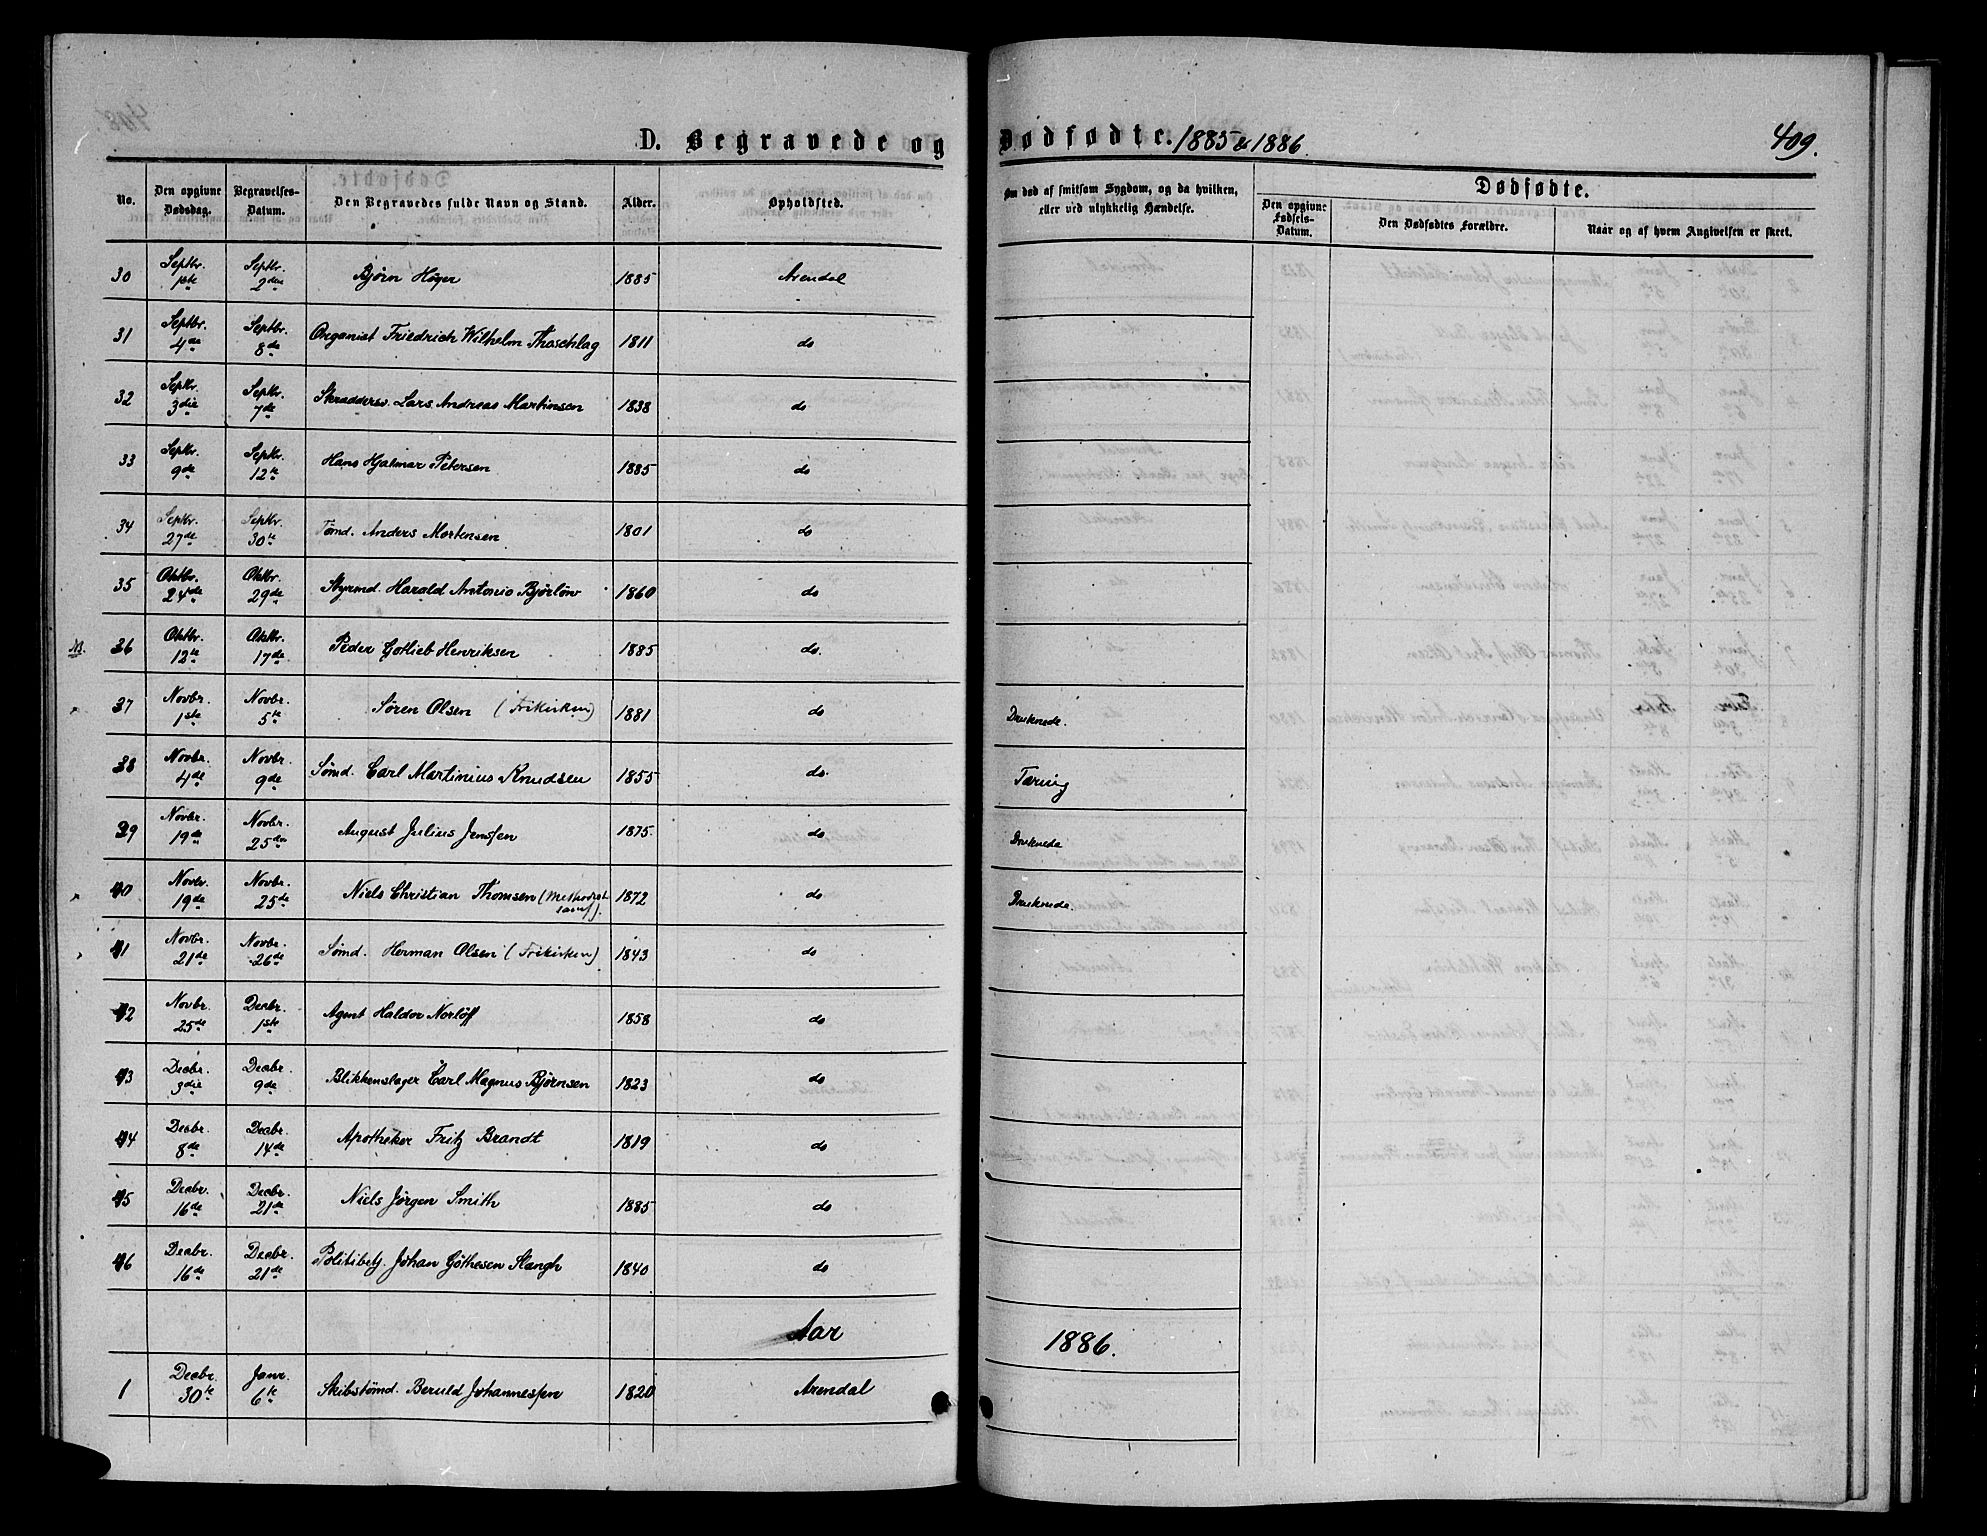 D. Begravede og Dødfødte. 1885 & 1886.
409.
No. Den opgivne Dødsdag. Begravelses-Datum. Den Begravedes fulde Navn og Stand. Alder. Opholdsted. Om død af smitsom Sygdom, og da hvilken, eller ved ulykkelig Hændelse. Dødfødte.
Den opgivne Fødsels-Datum. Den Dødfødtes Forældre. Naar og af hvem Angivelsen er skeet.
30 Septbr. 1ste Septbr. 2den Bjørn Høyer 1885 Arendal
31 Septbr. 4de Septbr. 8de Organist Friedrich Wilhelm Thoschlag 1811 do
32 Septbr. 3die Septbr. 7de Skraddersv. Lars Andreas Martinsen 1838 do
33 Septbr. 9de Septbr. 12te Hans Hjalmar Petersen 1885 do
34 Septbr. 27de Septbr. 30te Tømd. Anders Mortensen 1801 do
35 Oktbr. 24de Oktbr. 29de Styrmd. Harald Antonio Bjørlow 1860 do
NB. 36 Oktbr. 12te Oktbr. 17de Peder Gotlieb Henriksen 1885 do.
37 Novbr. 1ste Novbr. 5te Søren Olsen (Frikirken) 1881 do Druknede.
38 Novbr. 4de Novbr. 9de Sømd. Carl Martinius Knudsen 1855 do. Tæring
39 Novbr. 19de Novbr. 25de August Julius Jenssen 1875 do Druknede
40 Novbr. 19de Novbr. 25de Niels Christian Thomsen (Methodist samf). 1872 do Druknede.
41 Novbr. 21de Novbr. 26de Sømd. Herman Olsen (Frikirken) 1843 do
42 Novbr. 25de Decbr. 1ste Agent Haldor Norløff 1858 do
43 Decbr. 3die Decbr. 9de Blikkenslager Carl Magnus Bjørnsen 1823 do
44 Decbr. 8de Decbr. 14de Apotheker Fritz Brandt 1819 do
45 Decbr. 16de Decbr. 21de Niels Jørgen Smith 1885 do
46 Decbr. 16de Decbr. 21de Politibetj. Johan Gøthesen Slangh 1840 do
Aar 1886.
1 Decbr. 30te Janr. 6te Skibstømd. Beruld Johannessen 1820 Arendal